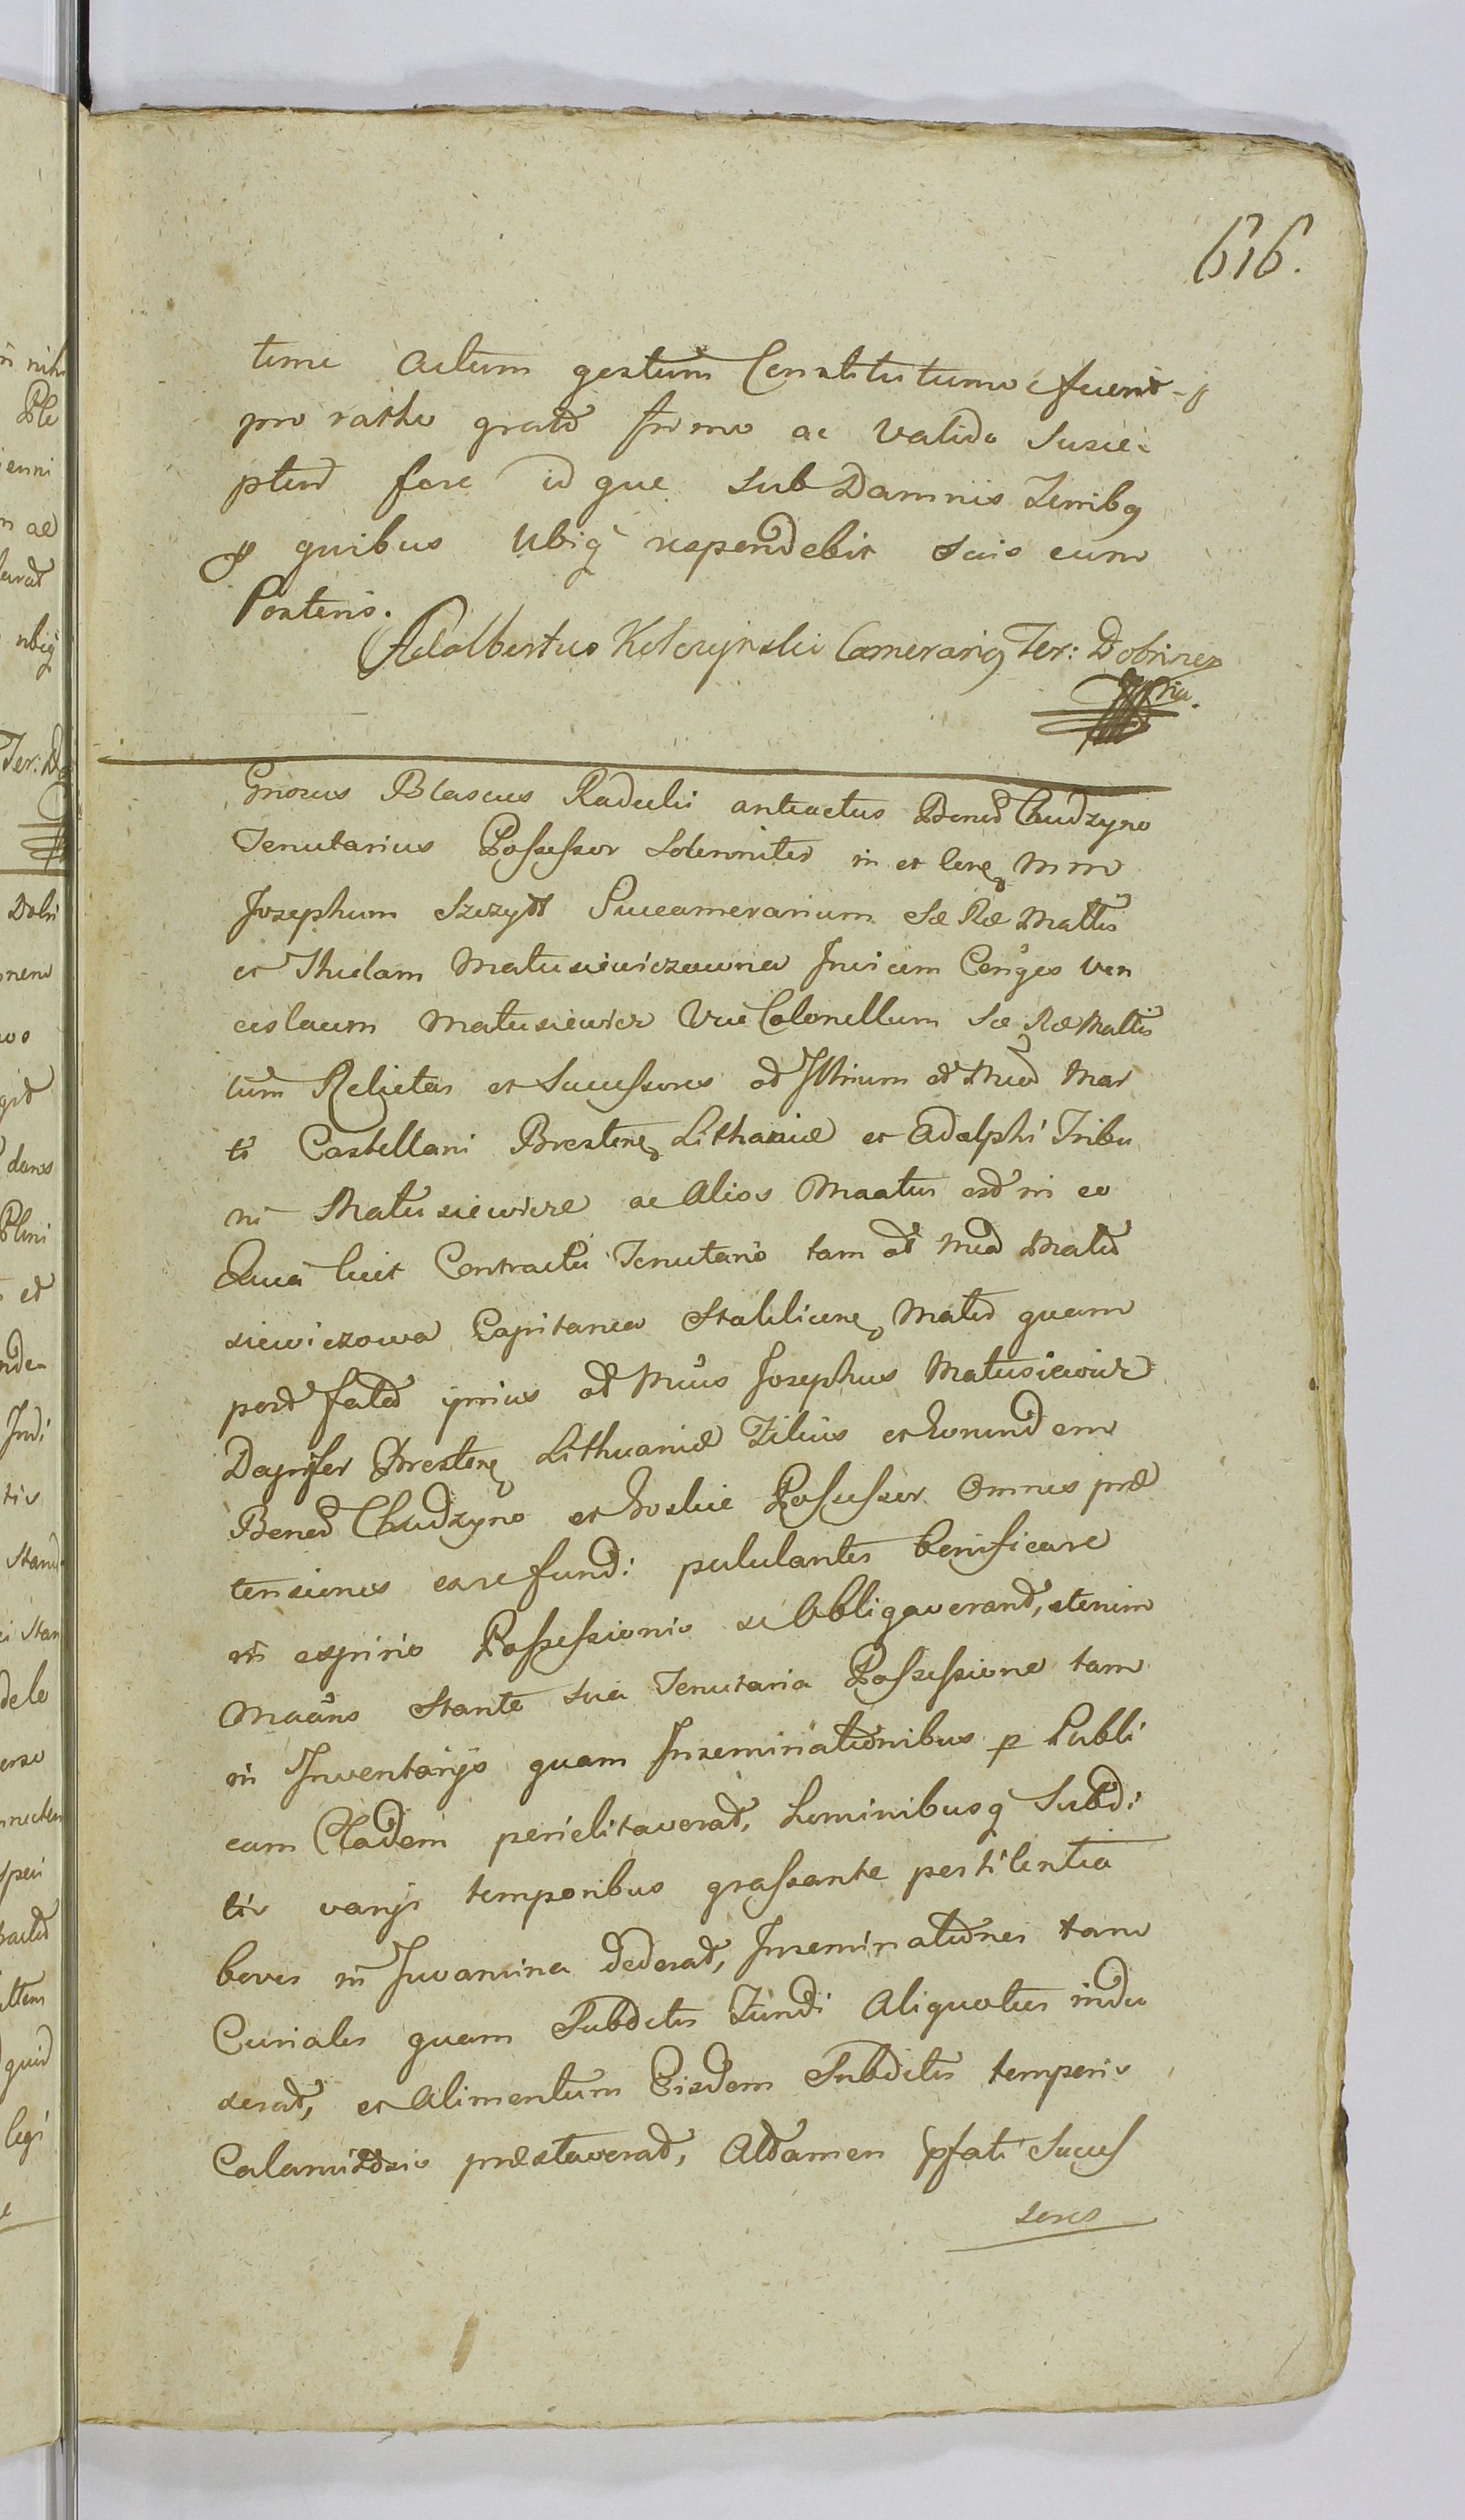 616.
time actum gestum Constitutumve fuerit
pro ratho grato firmo ac valido Susce
pturd fore id que sub Damnis Terribq
quibus Ubiq respondebit suis cum
Posteris.
Adalbertus Kolczynski Camerariq Ter: Dobrinen
mp.
Gnosus Blasius Radecki anteactus Bonoд Chudzyno
Tenutarius Possessor Solenniter in et Cone Mm
Josephum Szczytt Succamerarium Sæ Ræ Mattis
et Theclam Matusiewiczowna Invicem Conges Ven
ceslaum Matusiewicz Vice Colonellum Sæ Ræ Mattis
tum Relictas et Successores od Illrium od Mcod Mar
ti Castellani Brestene Lithaniæ et Adolphi Tribu
ni Matusiewicze ac Alios Maatur esd in eo
Quia licet Contractu Tenutario tam od Mcad Matu
siewiczowa Capitanea Stoklicene Mated quam
post fated ipsius od Mcus Josephus Matusiewicz
Dapifer Brestene Lithuaniæ Filius et eorundem
Bonod Chudzyno et Zoskie Possessor Omnes præ
tensiones ex re fundi pululantes bonificare
in expirio Possessionis se Obligaverand, etenim
Maans Stante sua Tenutaria Possessione tam
in Inventarijs quam Inseminationibus p Publi
cam Cladem periclitaverad, hominibusq Subdi
tis varijs temporibus grassante pestilentia
boves in Juvamina dederad, Inseminationes tam
Curiales quam Subditis Fundi Aliquotus indu
xerad, et Alimentum Eisdem Subditis temporis
Calamitosis præstaverad, Attamen pfati Succes
sores